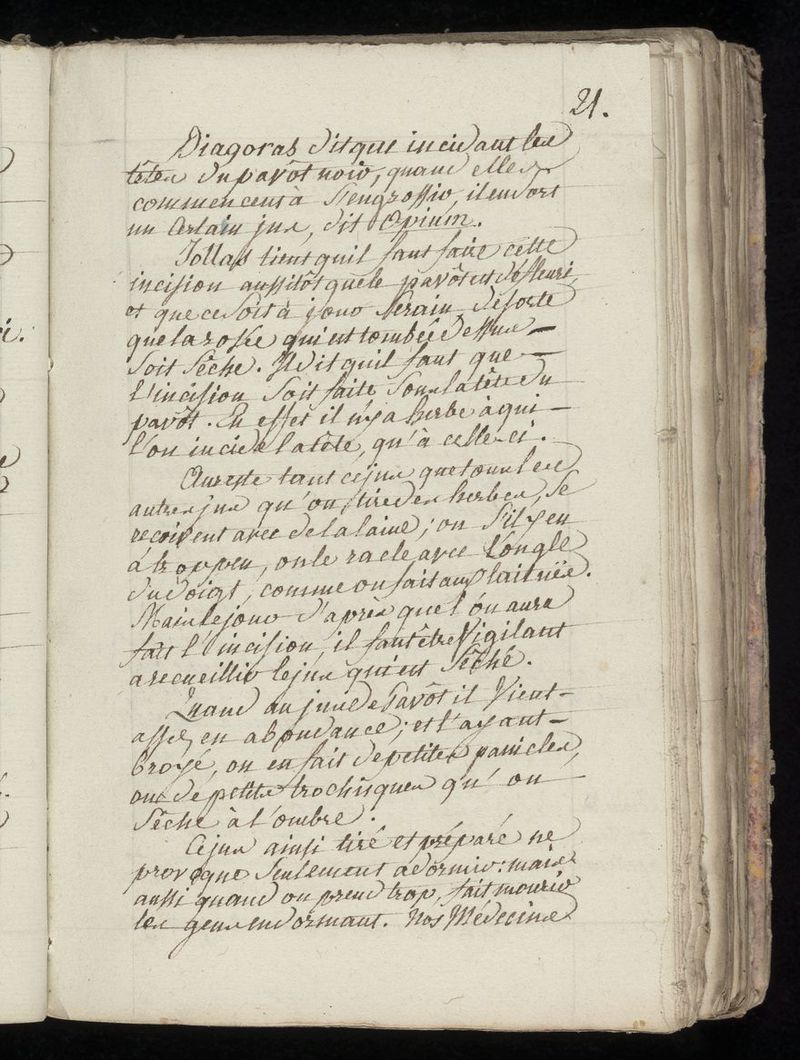 21.
Diagoras dit que incidant les
têtes du pavôt noir, quand elles
commencent à s'engrossir, il en sort
un certain jus, dit Opium.
Jollas tient quil faut faire cette
incision aussitôt que le pavôt est défleuri
et que ce soit à jour serain, desorte
que la rosée qui est tombée dessus
soit sêche. Il dit quil faut que
l'incision soit faite sous la tête du
pavôt. En effet il n'y a herbe à qui
l'on incide la tête, qu'à celle-ci.
Aureste tant ce jus que tous les
autres jus qu'on tire des herbes, se
reçoivent avec de la laine; ou s'il y en
à trop peu, on le racle avec l'ongle
du doigt, comme on fait aux laituës.
Mais le jour d'après que l'on aura
fait l'incision, il faut être Vigilant
a recueillir le jus qui est sêché.
Quand au jus de Pavôt il Vient
assez en abondance; et l'ayant
broyé, on en fait de petites panicles,
ou de petits trochisques qu'on
sêche à l'ombre.
Ce jus ainsi tiré et préparé ne
provoque seulement à dormir: mais
aussi quand on prend trop, fait mourir
les gens endormant. Nos Médecins